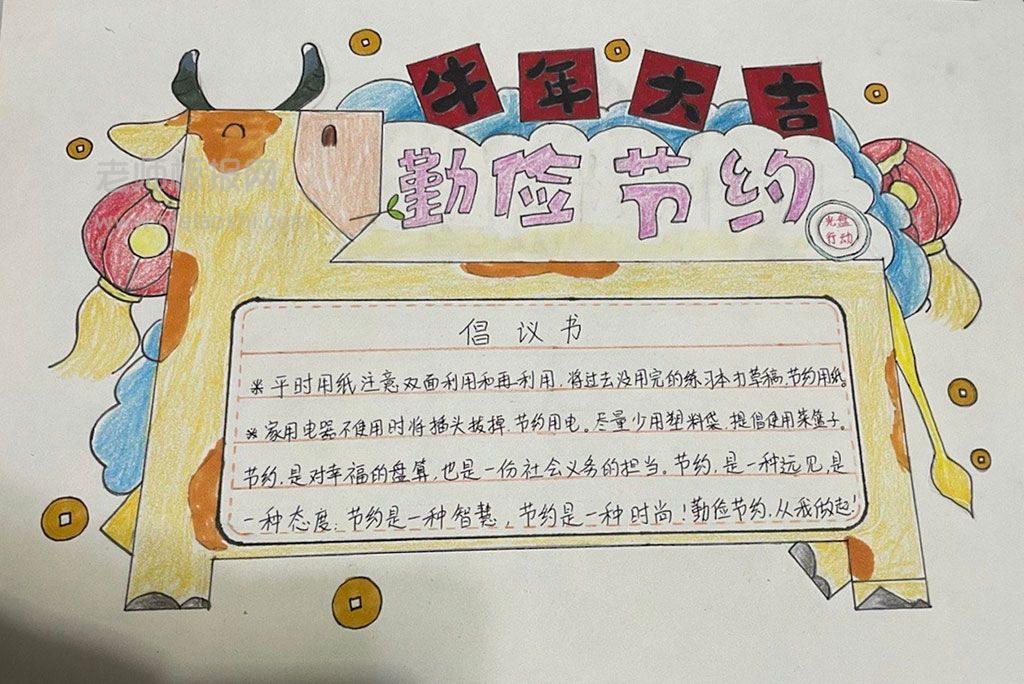 牛年大吉
勤俭节约
光盘
行动
老师画报网
倡议书
※平时用纸注意双面利用和再利用.将过去没用完的练习本力草稿,节约用纸。
※家用电器不使用时将插头拔掉.节约用电。尽量少用塑料袋.提倡使用菜篮子。
节约,是对幸福的盘算,也是一份社会义务的担当。节约,是一种远见,是
一种态度;节约是一种智慧,节约是一种时尚!勤俭节约,从我做起!